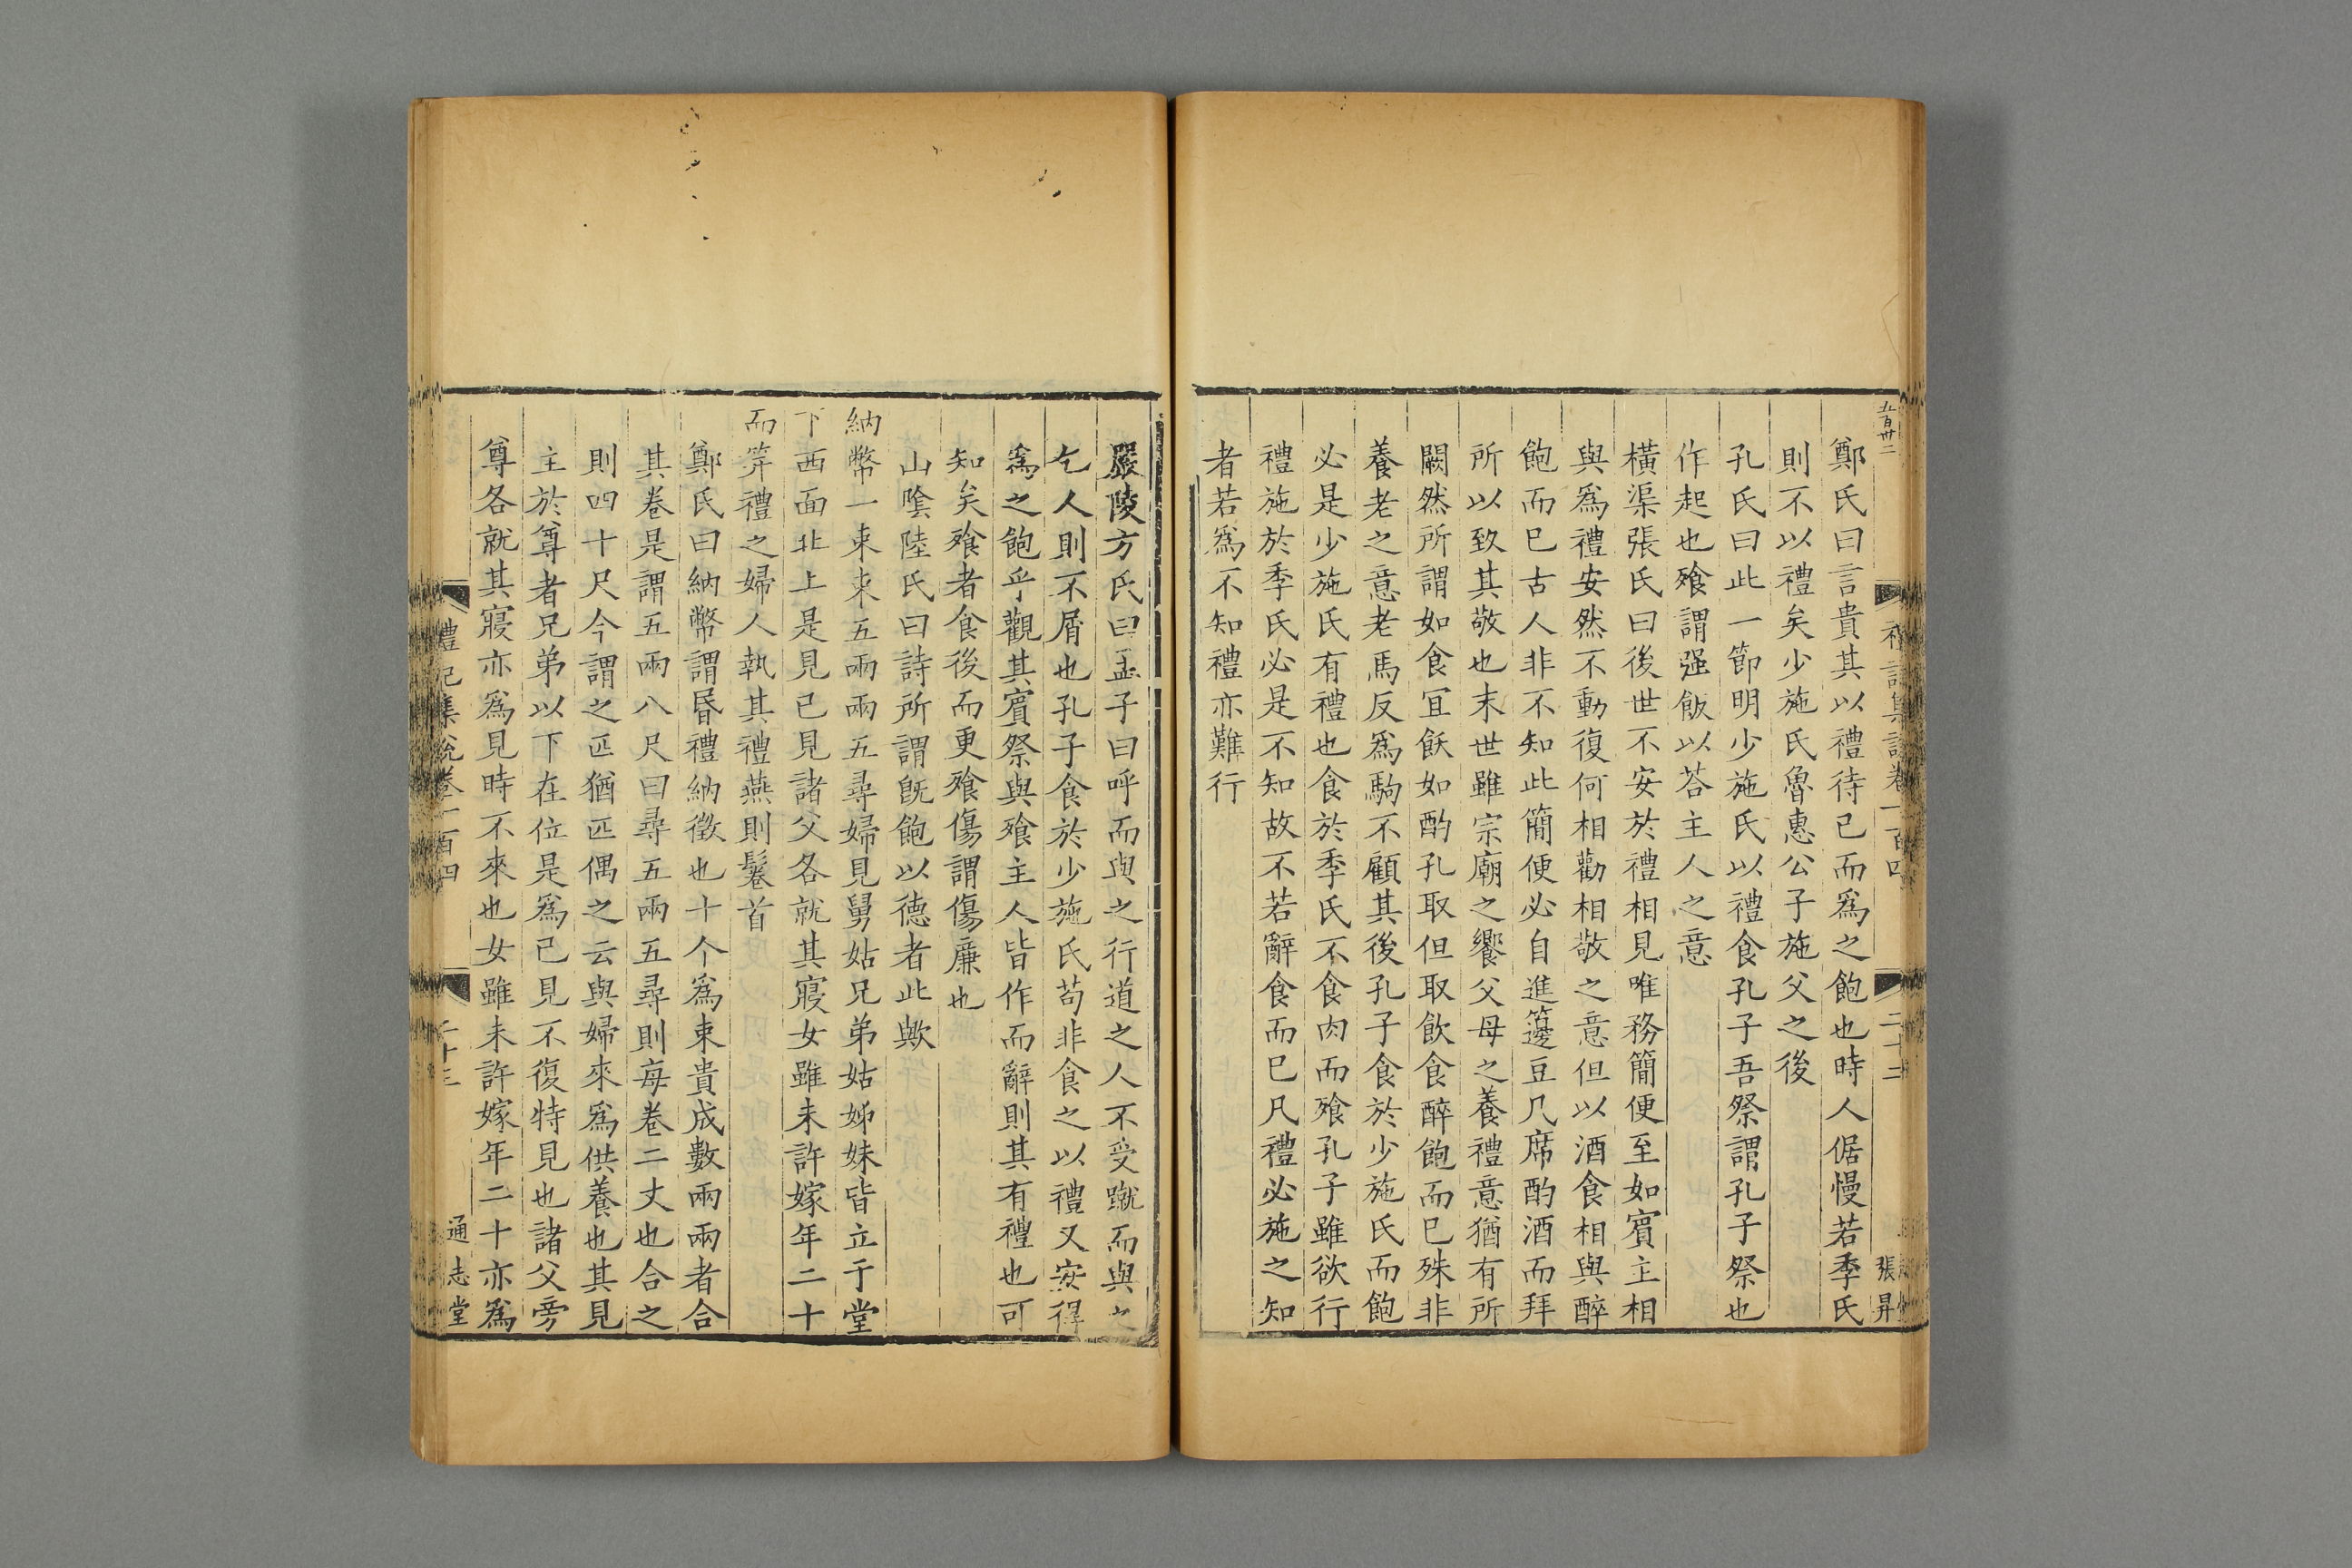 五百卅二
禮記集說卷一百四
二十二
張昇
鄭氏曰言貴其以禮待己而爲之飽也時人倨慢若季氏
則不以禮矣少施氏魯惠公子施父之後
孔氏曰此一節明少施氏以禮食孔子吾祭謂孔子祭也
作起也飱謂强飯以荅主人之意
橫渠張氏曰後世不安於禮相見唯務簡便至如賔主相
與爲禮安然不動復何相勸相敬之意但以酒食相與醉
飽而巳古人非不知此簡便必自進籩豆几席酌酒而拜
所以致其敬也末世雖宗廟之饗父母之養禮意猶有所
闕然所謂如食冝飫如酌孔取但取飲食醉飽而巳殊非
養老之意老馬反爲駒不顧其後孔子食於少施氏而飽
必是少施氏有禮也食於季氏不食肉而飱孔子雖欲行
禮施於季氏必是不知故不若辭食而巳凡禮必施之知
者若爲不知禮亦難行
嚴陵方氏曰孟子曰呼而與之行道之人不受蹴而與之
乞人則不屑也孔子食於少施氏苟非食之以禮又安得
爲之飽乎觀其賔祭與飱主人皆作而辭則其有禮也可
知矣飱者食後而更飱傷謂傷廉也
山隂陸氏曰詩所謂旣飽以德者此歟
納幣一束束五兩兩五尋婦見舅姑兄弟姑姊妹皆立于堂
下西面北上是見已見諸父各就其寢女雖未許嫁年二十
而筓禮之婦人執其禮燕則鬈首
鄭氏曰納幣謂昬禮納徵也十个爲束貴成數兩兩者合
其卷是謂五兩八尺曰尋五兩五尋則每卷二丈也合之
則四十尺今謂之匹猶匹偶之云與婦來爲供養也其見
主於尊者兄弟以下在位是爲已見不復特見也諸父旁
尊各就其寢亦爲見時不來也女雖未許嫁年二十亦爲
禮記集說卷一百四
二十三
通志堂